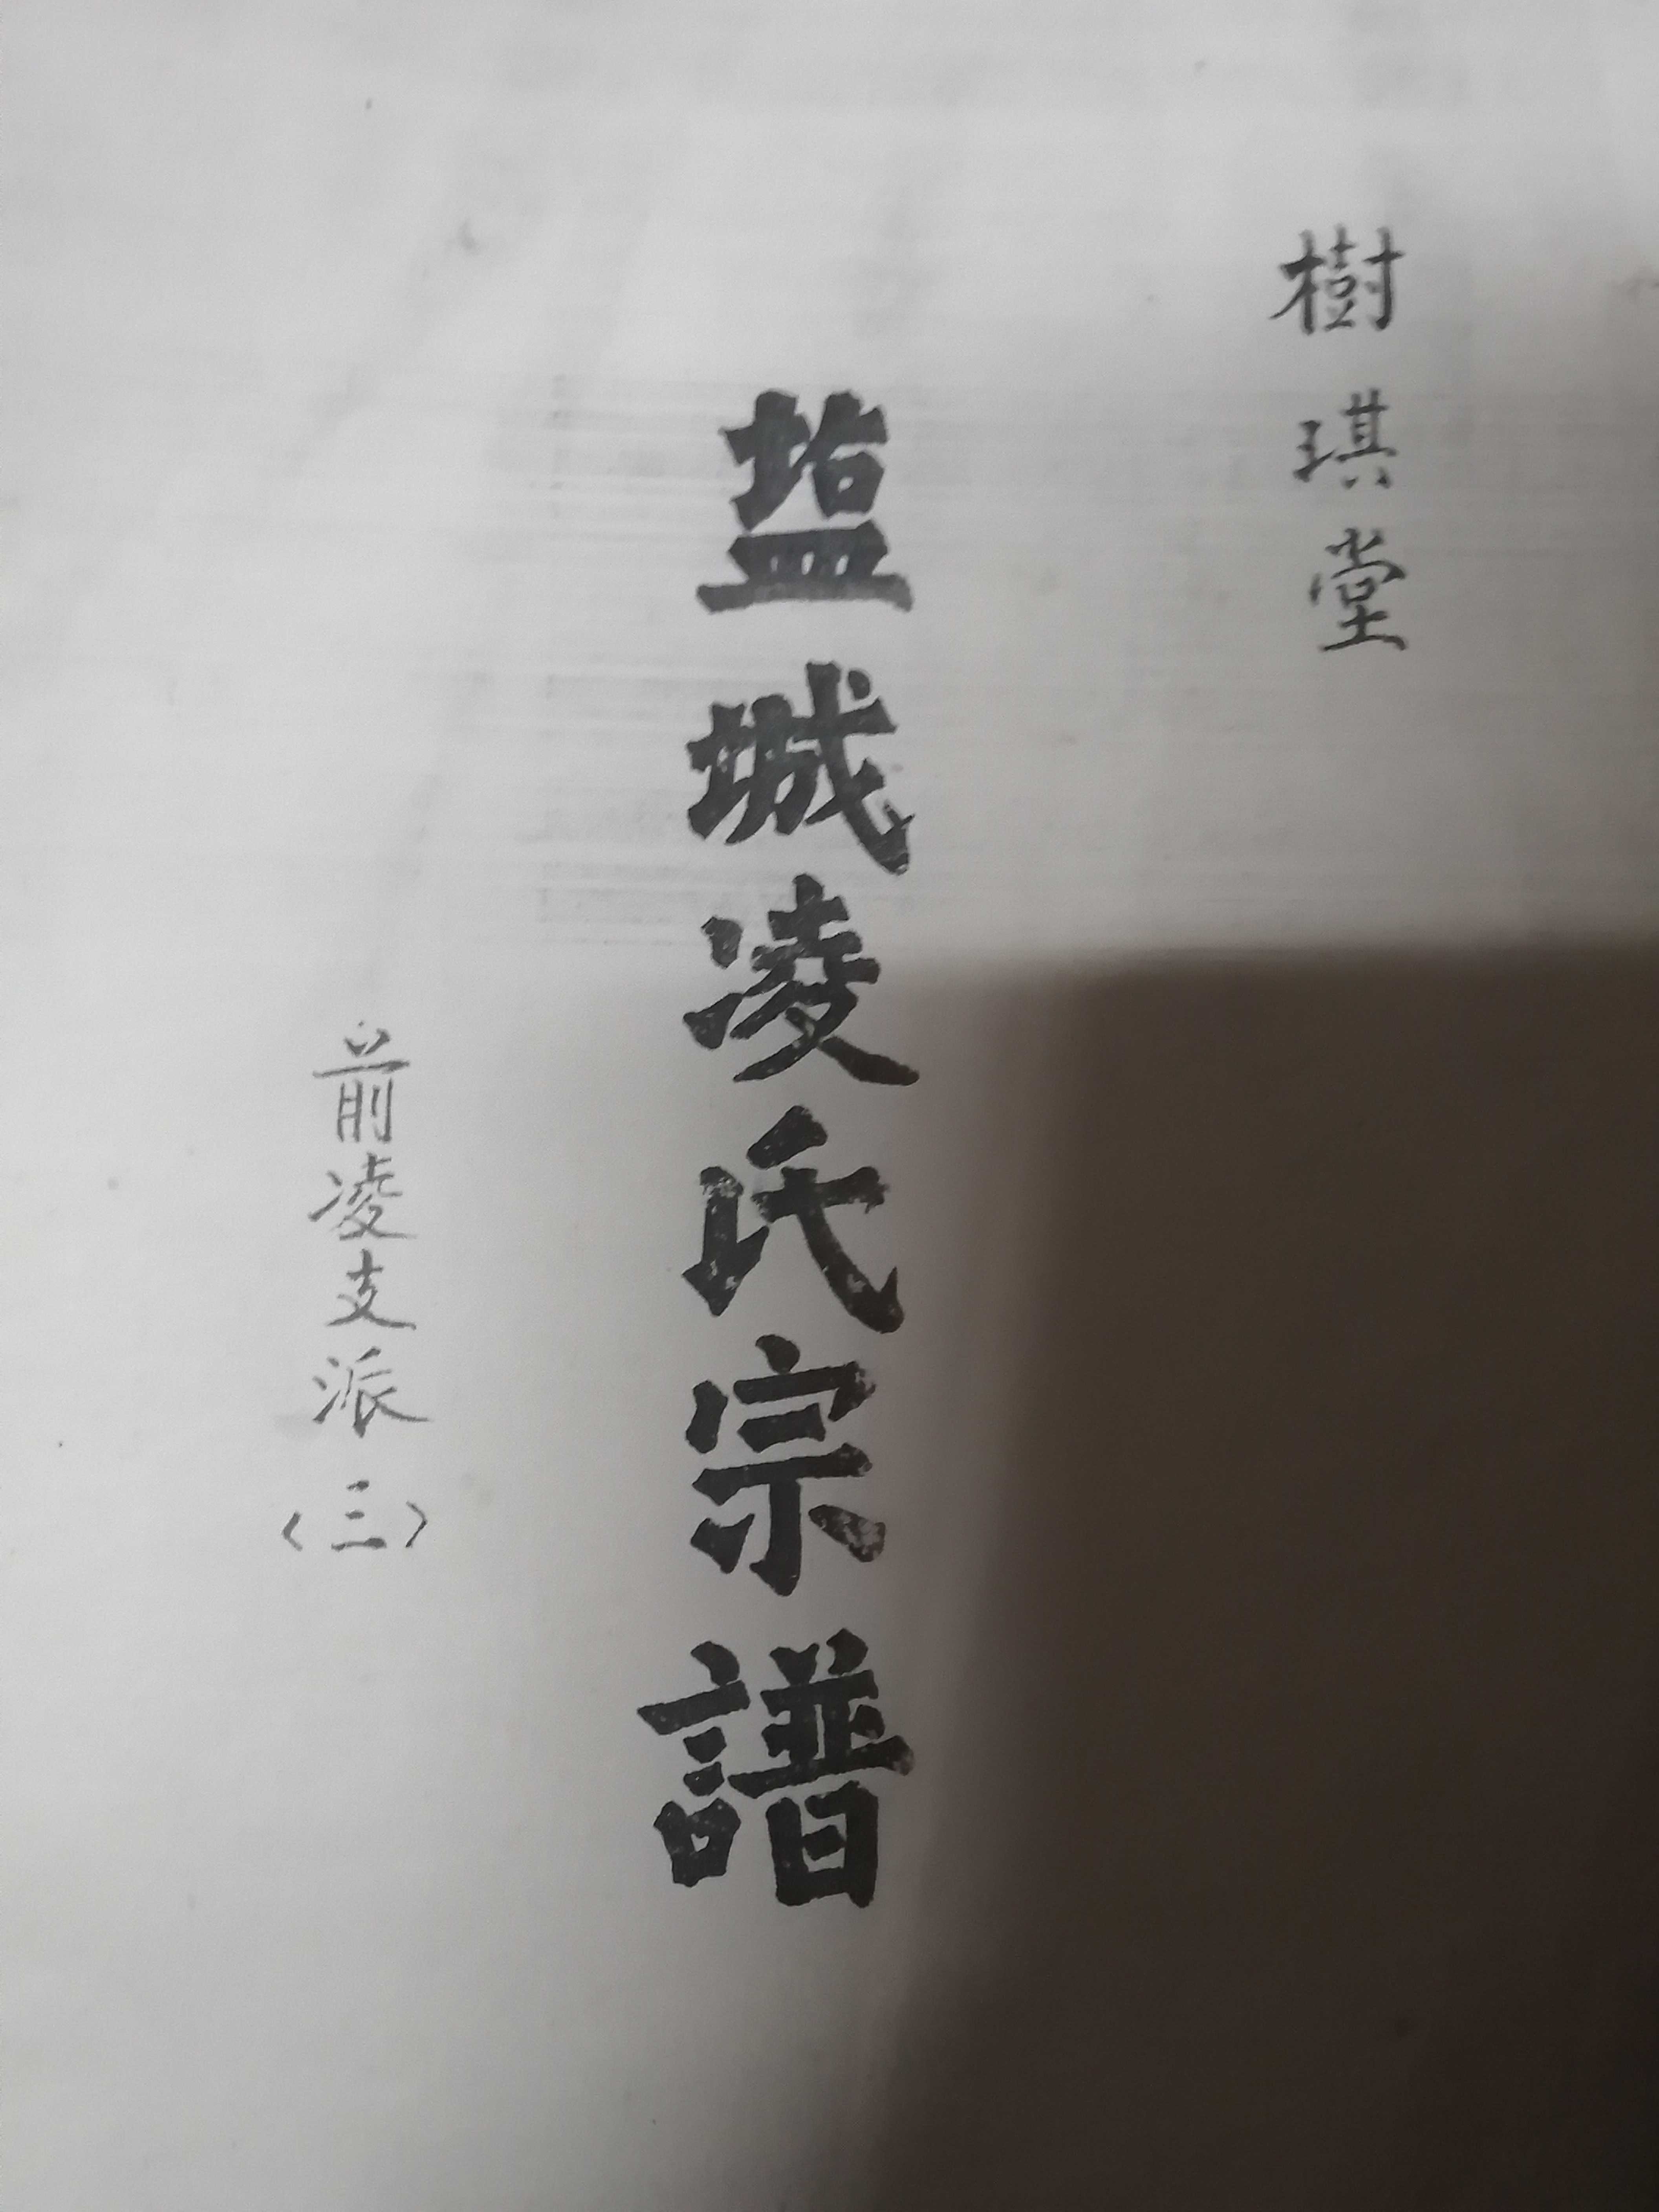 樹琪堂
盐城凌氏宗譜
前凌支派〈三〉